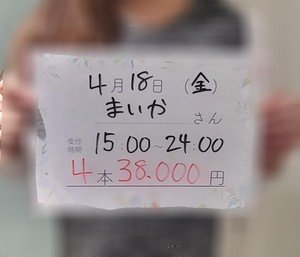 4月18日 (金)
まいか さん
受付時間 15:00~24:00
4本 38.000円